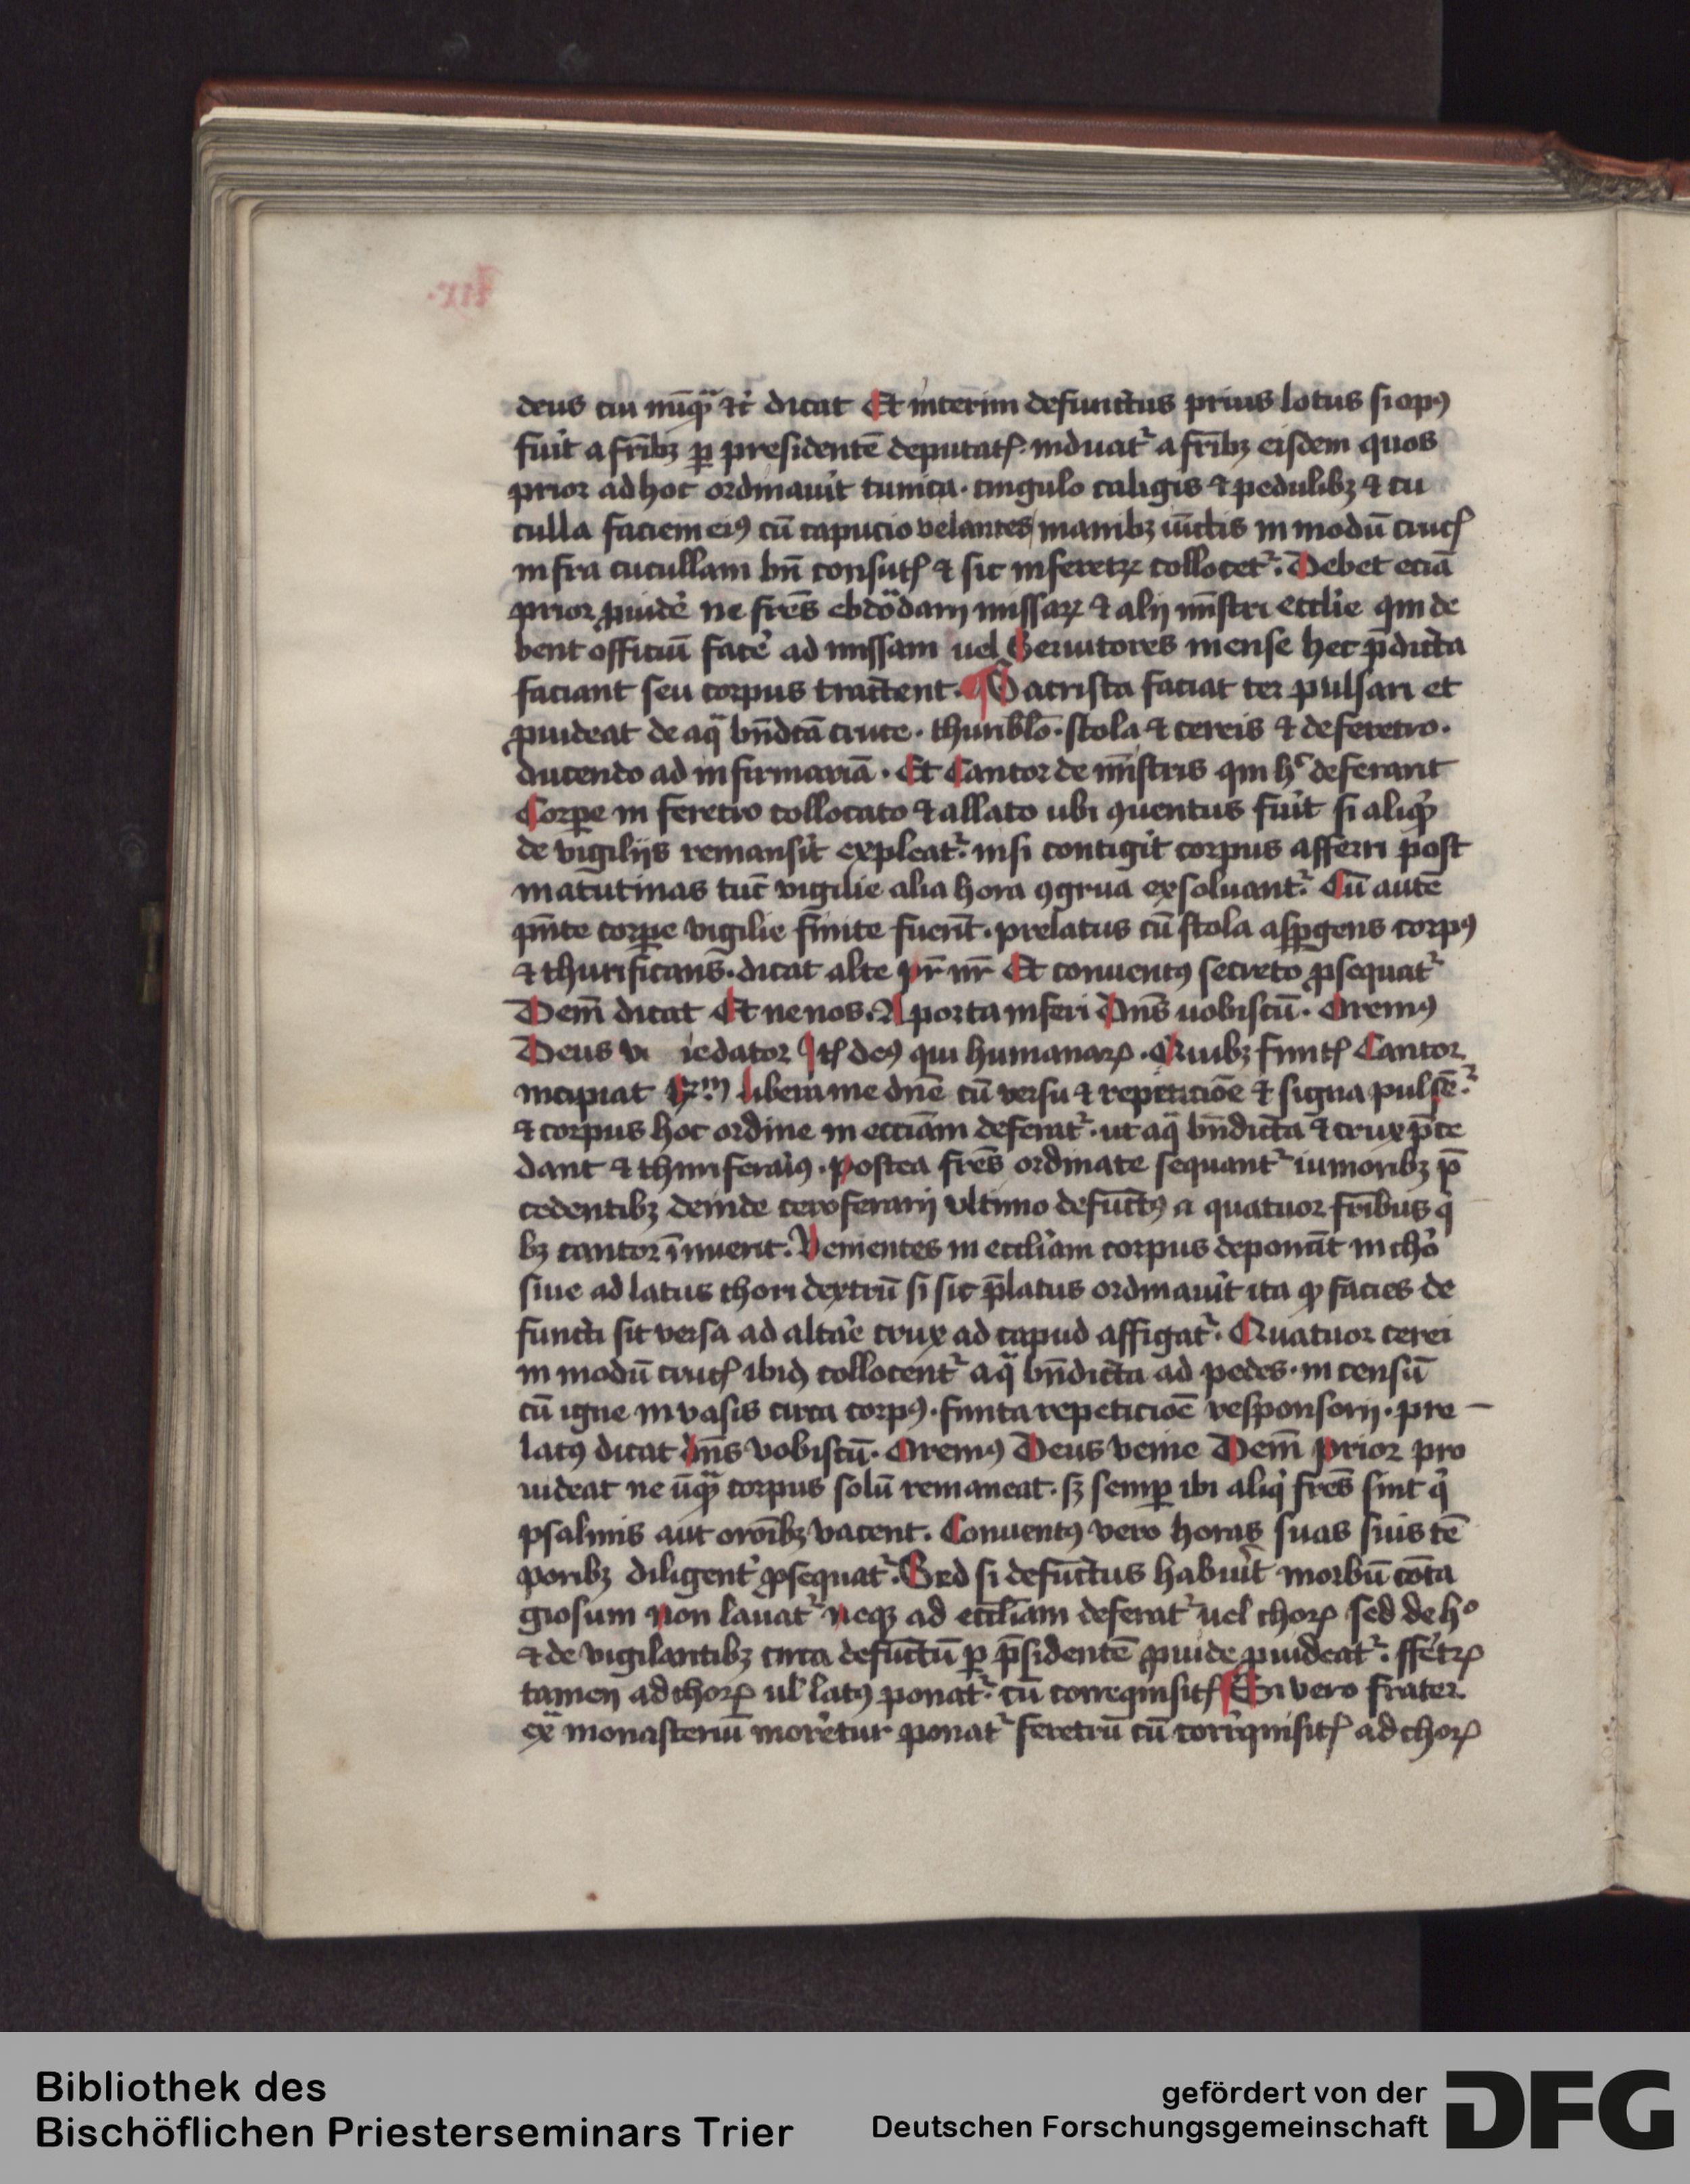 deus cui nūqͣ ⁊c̉ dicat Et interim defunctus prius lotus si opꝰ
fuit̉ a fr̄ibꝫ ꝑ presidentē deputatꝭ· induat᷑ a fr̄ibꝫ eisdem quos
prior ad hoc ordinauit̉ tunica· cingulo caligis ⁊ pedulibꝫ ⁊ cu
culla faciem eiꝰ cū capucio velantes/ manibꝫ iūctis in modū crucꝭ
infra cucullam bn̄ consutꝭ ⁊ sic in feretꝝ collocet᷑· Debet eciā
prior ꝓuidẻ ne fr̄es ebdōdarij missaꝝ ⁊ alij mīstri eccl̉ie qui de
bent officiū facẻ ad missam uel Seruitores mense hec p̄dicta
faciant seu corpus tractent· ¶ Sacrista faciat ter pulsari et
ꝓuideat de aqͣ bn̄dcā cruce· thuribl̄o· stola ⁊ cereis ⁊ de feretro·
ducendo ad infirmariā· Et Cantor de mīstris qui hͨ deferant
Corꝑe in feretro collocato ⁊ allato ubi ꝯuentus fuit̉ si aliqͥd
de vigilijs remansit̉ expleat᷑· nisi contigit̉ corpus afferri post
matutinas tūc vigilie alia hora ꝯgrua exsoluant᷑· Cū autē
pn̄te corꝑe vigilie finite fuerīt· prelatus cū stola asꝑgens corpꝰ
⁊ thurificans· dicat alte pr̄ nr̄ Et conuentꝰ secreto ꝓsequat᷑
Dem̄ dicat Et ne nos· A porta inferi Dn̄s uobiscū· Oremꝰ
Deus iedator Itꝭ deꝰ qui humanaꝝ· Quibꝫ finitꝭ Cantor
incipiat ℟m libera me dn̄e cū versu ⁊ repeticiōe ⁊ signa pulsē᷑·
⁊ corpus hoc ordine in ecciām deferat᷑· ut aqͣ bn̄dicta ⁊ crux p̄ce
dant ⁊ thuriferariꝰ· postea fr̄es ordinate sequant᷑ iunioribꝫ p̄
cedentibꝫ deinde ceroferarij vltimo defūctꝰ a quatuor fr̄ibus qͥ
bꝫ cantor īnuerit· Venientes in eccl̉iam corpus deponāt in chỏ
siue ad latus chori dextrū si sic p̄latus ordinauit̉ ita ꝙ facies de
functi sit versa ad altảe crux ad capud affigat᷑· Quatuor cerei
in modū crucꝭ ibidꝫ collocent᷑ aqͣ bn̄dicta ad pedes· incensū
cū igne in vasis circa corpꝰ· finita repeticiōe responsorij· pre
latꝰ dicat dn̄s vobiscū· Oremꝰ Deus venie Dem̄ prior pro
uideat ne ūqͣ corpus solū remaneat· sꝫ semꝑ ibi aliqͥ fr̄es sint qͥ
psalmis aut oroībꝫ vacent· Conuentꝰ vero horas suas suis tē
poribꝫ diligent̉ ꝓsequat᷑· Sed si defūctus habuit̉ morbū cōta
giosum non lauat᷑ neqꝫ ad eccl̄iam deferat᷑ uel choꝝ sed de hͦ
⁊ de vigilantibꝫ circa defūctū ꝑ p̄sidentē ꝓuide ꝓuideat᷑· ffẻtꝝ
tamen ad choꝝ ul̉ latꝰ ponat᷑· cū correquisitꝭ ¶ Si vero frater
exͣ monasteriū morẻtur ponat᷑ feretrū cū corr̉quisitꝭ ad choꝝ
Bibliothek des
Bischöflichen Priesterseminars Trier
gefördert von der
Deutschen Forschungsgemeinschaft
DFG